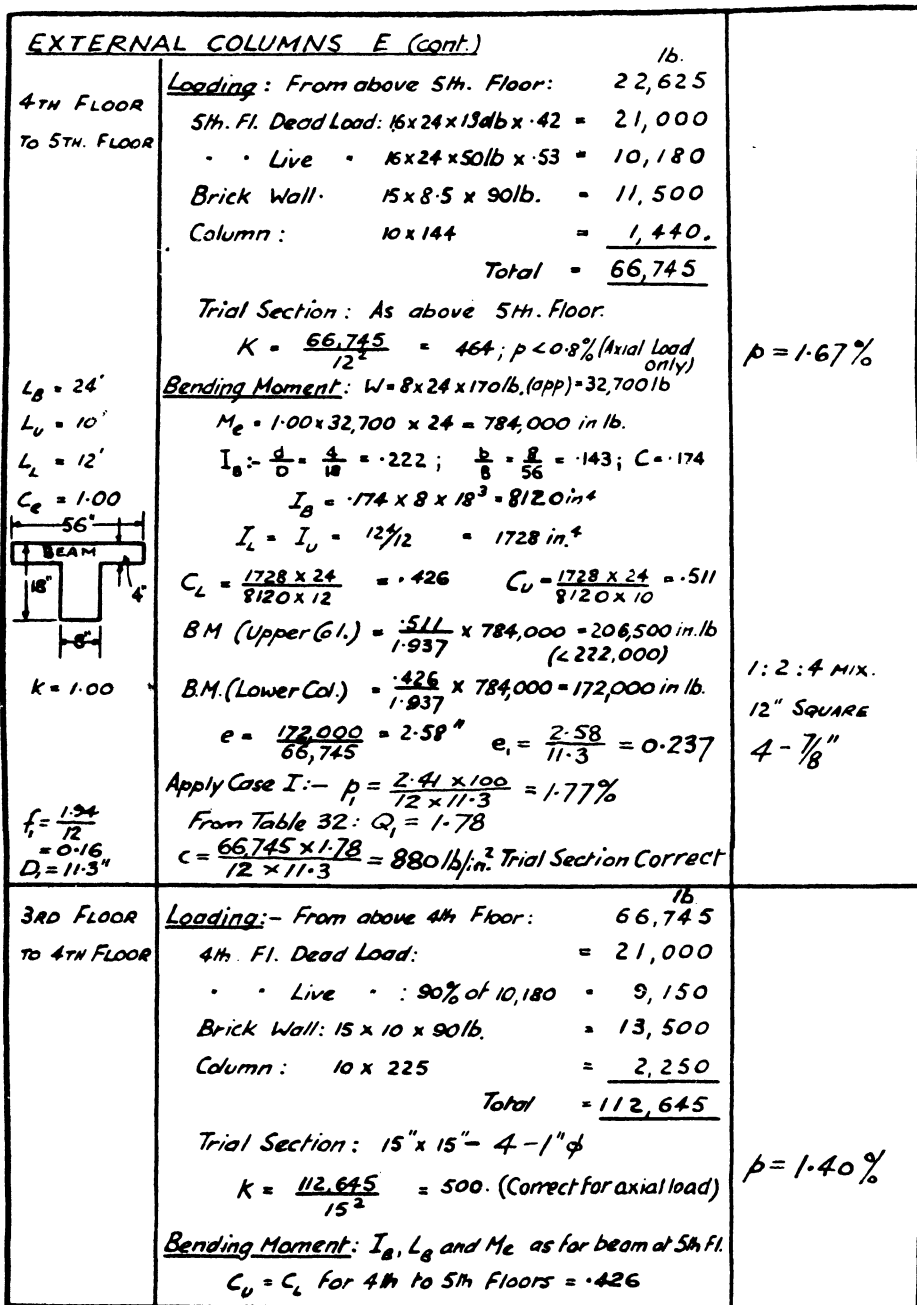 EXTERNAL COLUMNS E (cont.)
4TH FLOOR
TO 5TH. FLOOR
lb.
Loading: From above 5th. Floor: 22,625
5th. Fl. Dead Load: 16x24x130lb x ·42 = 21,000
" " Live " 16x24x50lb x ·53 = 10,180
Brick Wall. 15 x 8·5 x 90lb. = 11,500
Column: 10 x 144 = 1,440.
Total = 66,745
Trial Section: As above 5th. Floor.
K = 66,745/12² = 464; p < 0·8% (Axial Load only)
p = 1·67%
Bending Moment: W = 8x24x170lb.(app) = 32,700 lb
L_B = 24'
L_U = 10'
L_L = 12'
C_e = 1·00
56"
BEAM
18"
4"
8"
K = 1·00
M_e = 1·00 x 32,700 x 24 = 784,000 in lb.
I_B:- d/D = 4/18 = ·222; b/B = 8/56 = ·143; C = ·174
I_B = ·174 x 8 x 18³ = 8120 in⁴
I_L = I_U = 12⁴/12 = 1728 in.⁴
C_L = 1728 x 24/8120 x 12 = ·426 C_U = 1728 x 24/8120 x 10 = ·511
BM (Upper Col.) = ·511/1·937 x 784,000 = 206,500 in.lb
(<222,000)
B.M. (Lower Col.) = ·426/1·937 x 784,000 = 172,000 in lb.
e = 172,000/66,745 = 2·58" e₁ = 2·58/11·3 = 0·237
1:2:4 MIX.
12" SQUARE
4 - 7/8"
Apply Case I:- p₁ = 2·41 x 100/12 x 11·3 = 1·77%
From Table 32: Q₁ = 1·78
f₁ = 1·94/12
= 0·16
D₁ = 11·3"
c = 66,745 x 1·78/12 x 11·3 = 880 lb/in.² Trial Section Correct
3RD FLOOR
TO 4TH FLOOR
lb.
Loading:- From above 4th Floor: 66,745
4th. Fl. Dead Load: = 21,000
" " Live " : 90% of 10,180 = 9,150
Brick Wall: 15 x 10 x 90lb. = 13,500
Column: 10 x 225 = 2,250
Total = 112,645
Trial Section: 15" x 15" - 4 - 1" φ
K = 112,645/15² = 500. (Correct for axial load)
p = 1·40%
Bending Moment: I_B, L_B and M_e as for beam at 5th Fl.
C_U = C_L for 4th to 5th Floors = ·426